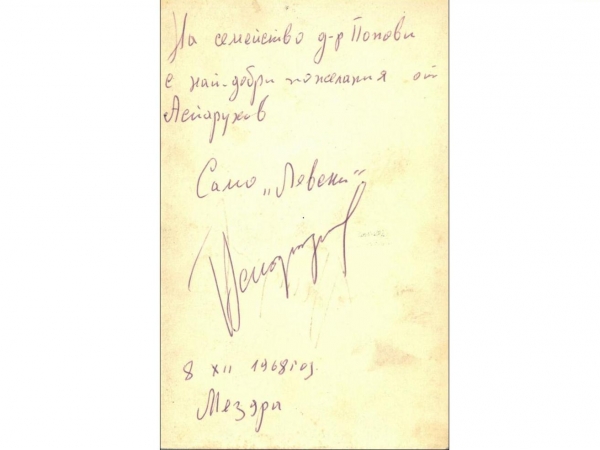 На семейство д-р Попови
с най-добри пожелания от
Аспарухов
Само „Левски“
8 XII 1968 год.